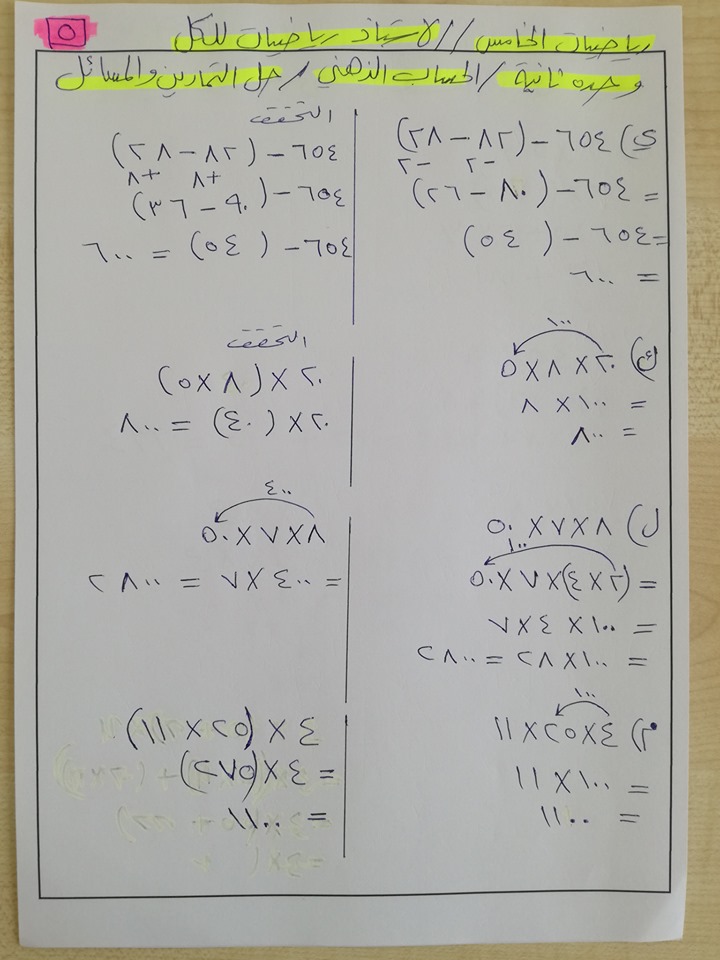 ٥
رياضيات الخامس // الاستاذ رياضيات للكل
وحده ثانية / الحساب الذهني / حل التمارين والمسائل
ي) ٦٥٤ − (٨٢ − ٢٨)
−٢ −٢
= ٦٥٤ − (٨٠ − ٢٦)
= ٦٥٤ − (٥٤)
= ٦٠٠
التحقق
٦٥٤ − (٨٢ − ٢٨)
+٨ +٨
٦٥٤ − (٩٠ − ٣٦)
٦٥٤ − (٥٤) = ٦٠٠
١٠٠
ك) ٢٠ × ٨ × ٥
= ١٠٠ × ٨
= ٨٠٠
التحقق
٢٠ × (٨ × ٥)
٢٠ × (٤٠) = ٨٠٠
ل) ٨ × ٧ × ٥٠
١٠٠
= (٢ × ٤) × ٧ × ٥٠
= ١٠٠ × ٤ × ٧
= ١٠٠ × ٢٨ = ٢٨٠٠
٤٠٠
٨ × ٧ × ٥٠
= ٤٠٠ × ٧ = ٢٨٠٠
١٠٠
م) ٤ × ٢٥ × ١١
= ١٠٠ × ١١
= ١١٠٠
٤ × (٢٥ × ١١)
= ٤ × (٢٧٥)
= ١١٠٠